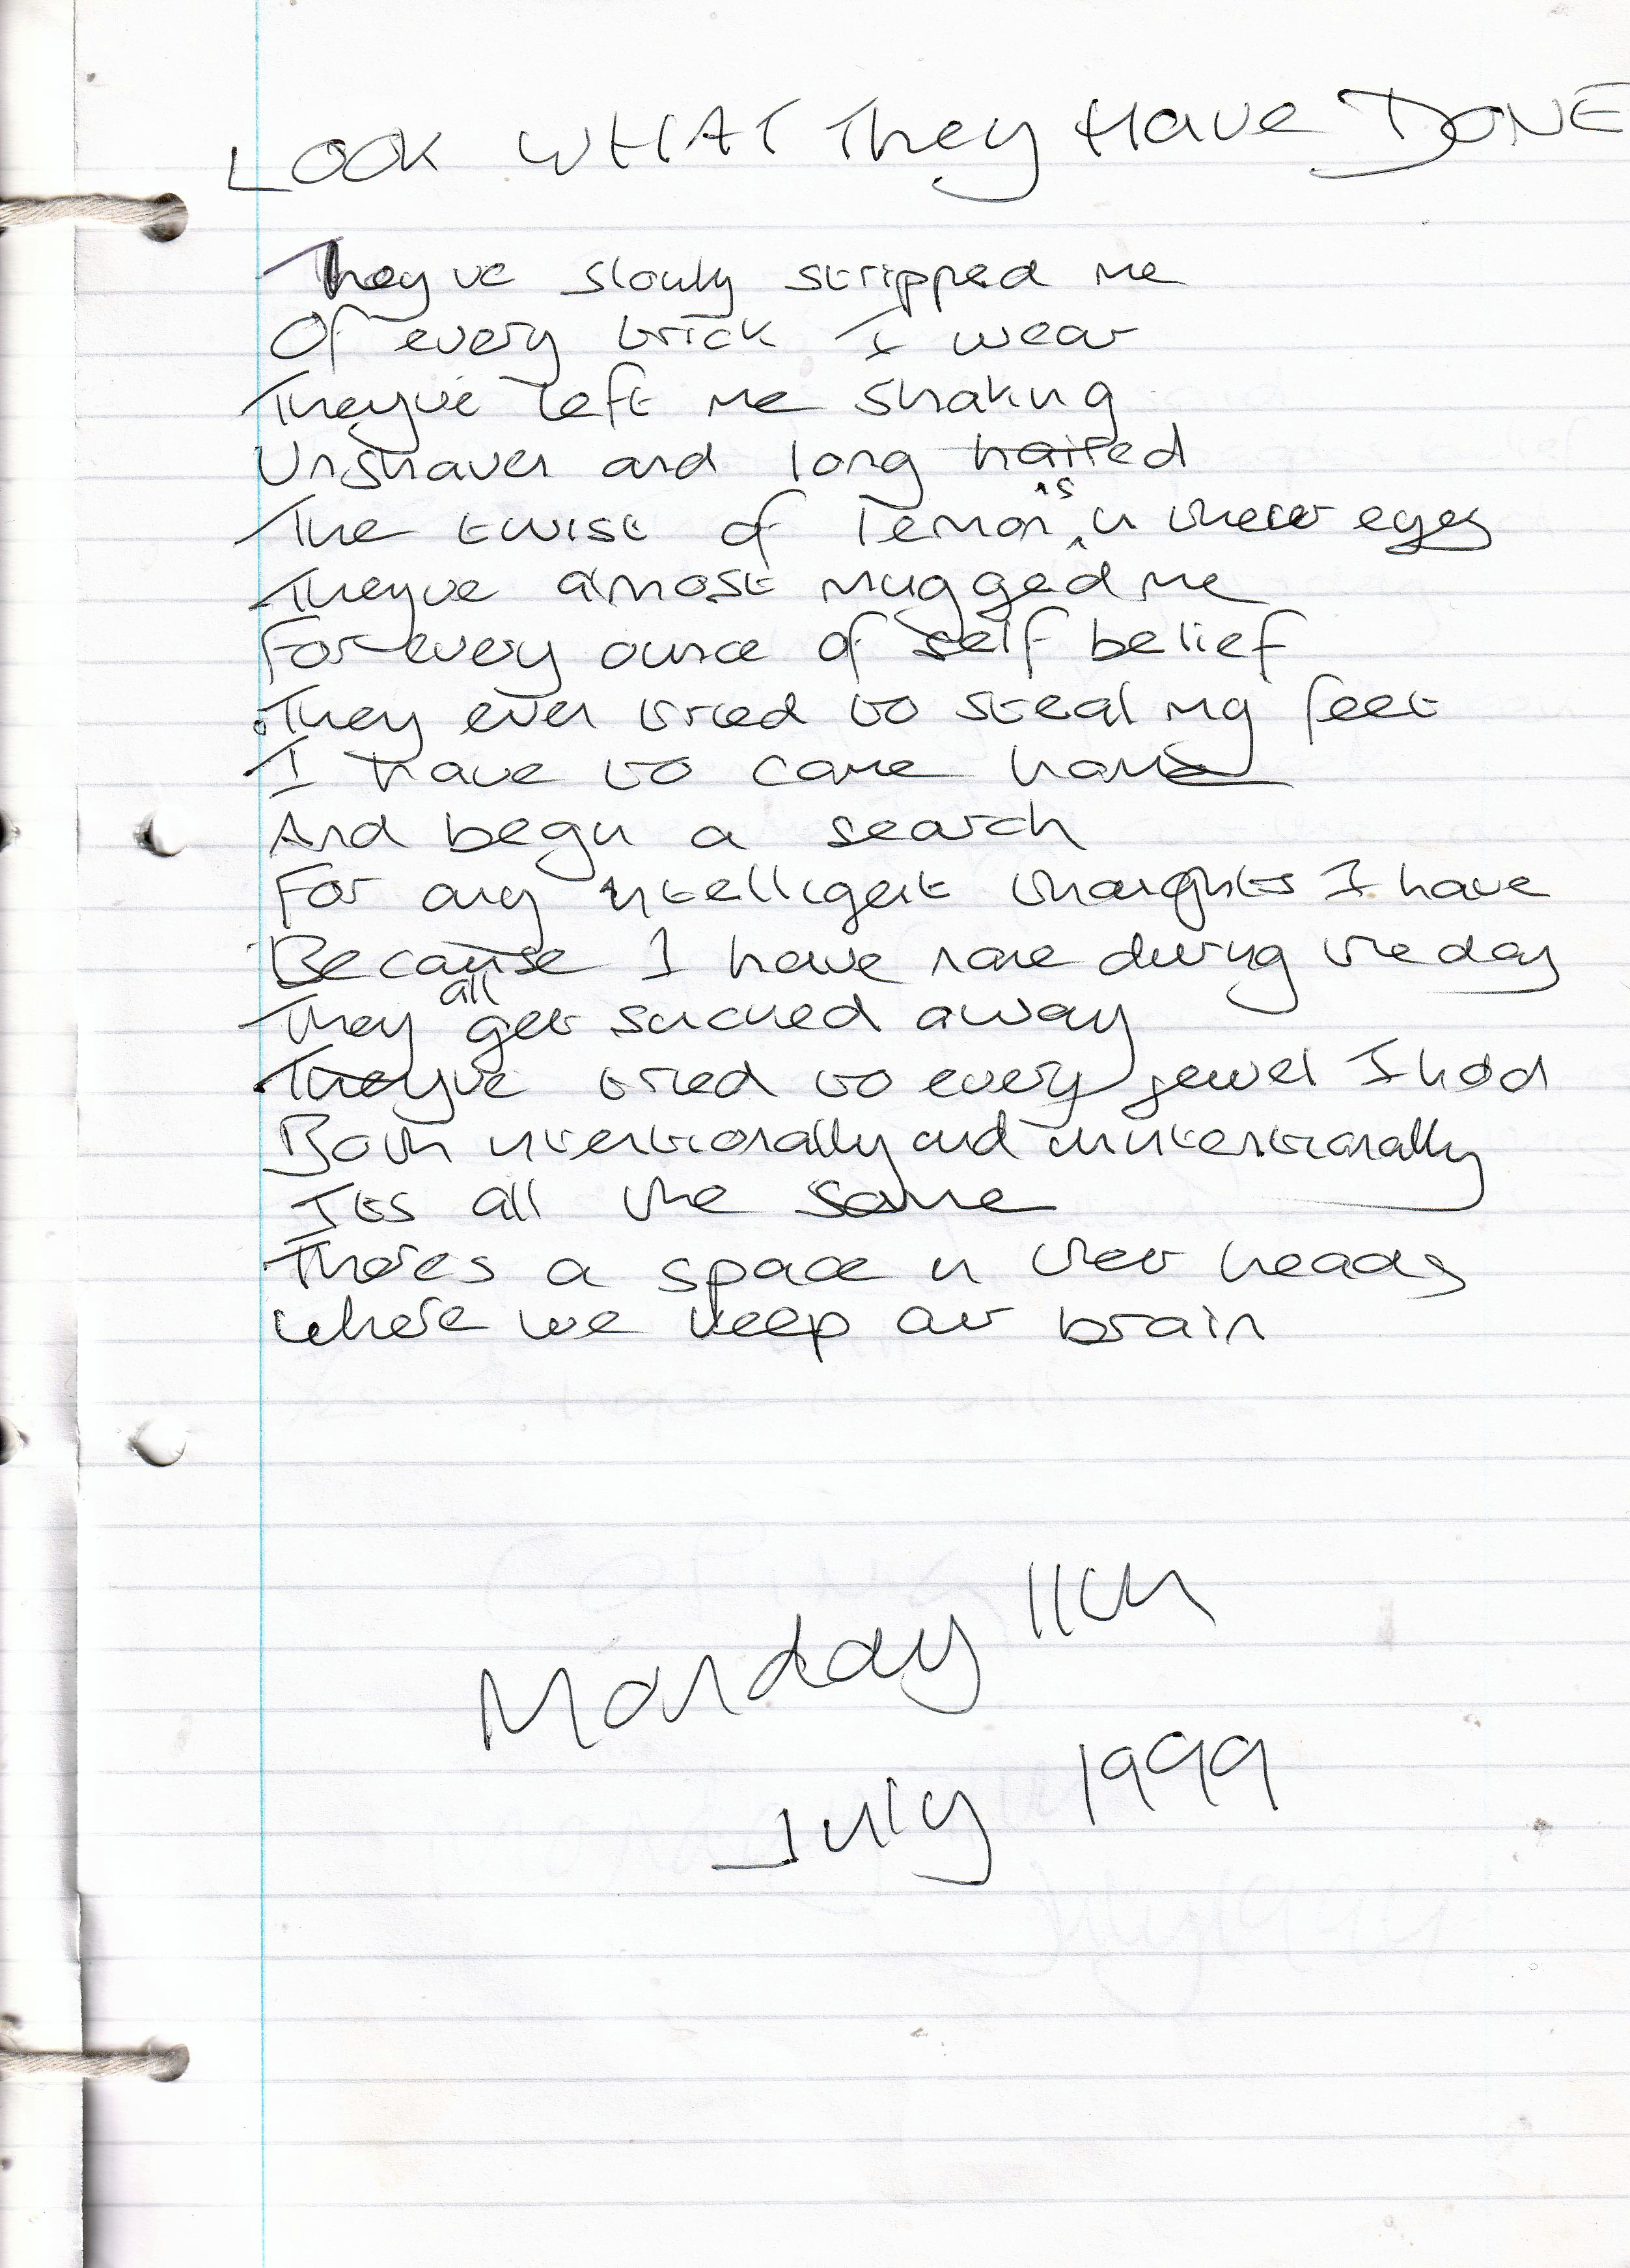 LOOK WHAT They Have DONE
Theyve slowly stripped me
Of every brick I wear
Theyve left me shaking
Unshaven and long haired
The twist of lemon is in their eyes
Theyve almost mugged me
For every ounce of self belief
They even tried to steal my feet
I have to come home
And begin a search
For any intelligent thoughts I have
Because I have none during the day
They all get sucked away
Theyve tried to every jewel I had
Both intentionally and unintentionally
Its all the same
Theres a space in their heads
Where we keep our brain
Monday 11th
July 1999